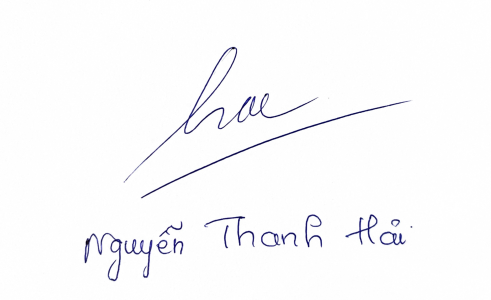 Nguyễn Thanh Hải